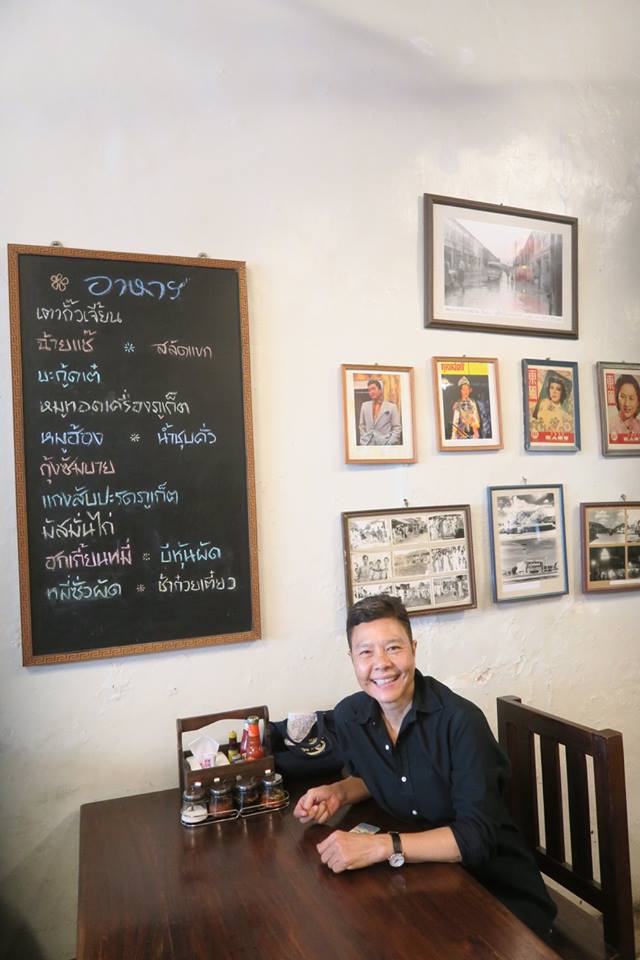 อาหาร
เตากั๊วเจี้ยน
ฉ้ายแช้ * สลัดแขก
บะกู้ดเต๋
หมูทอดเครื่องภูเก็ต
หมูฮ้อง * น้ำชุบคั่ว
กุ้งซัมบาย
แกงสับปะรดภูเก็ต
มัสมั่นไก่
ฮกเกี้ยนหมี่ * บีหุ้นผัด
หมี่ซั่วผัด * ชำก๋วยเตี๋ยว